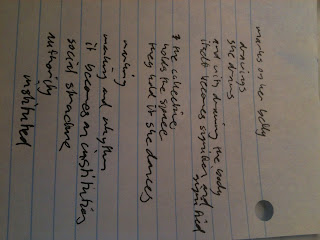 marks on her belly
drawings
she draws
and drawing the body
itself becomes signifier and
signified
the collective
holds the space
they hold it she dances
marking
marking and rhythm
it becomes an institution
social structure
authority
instituted